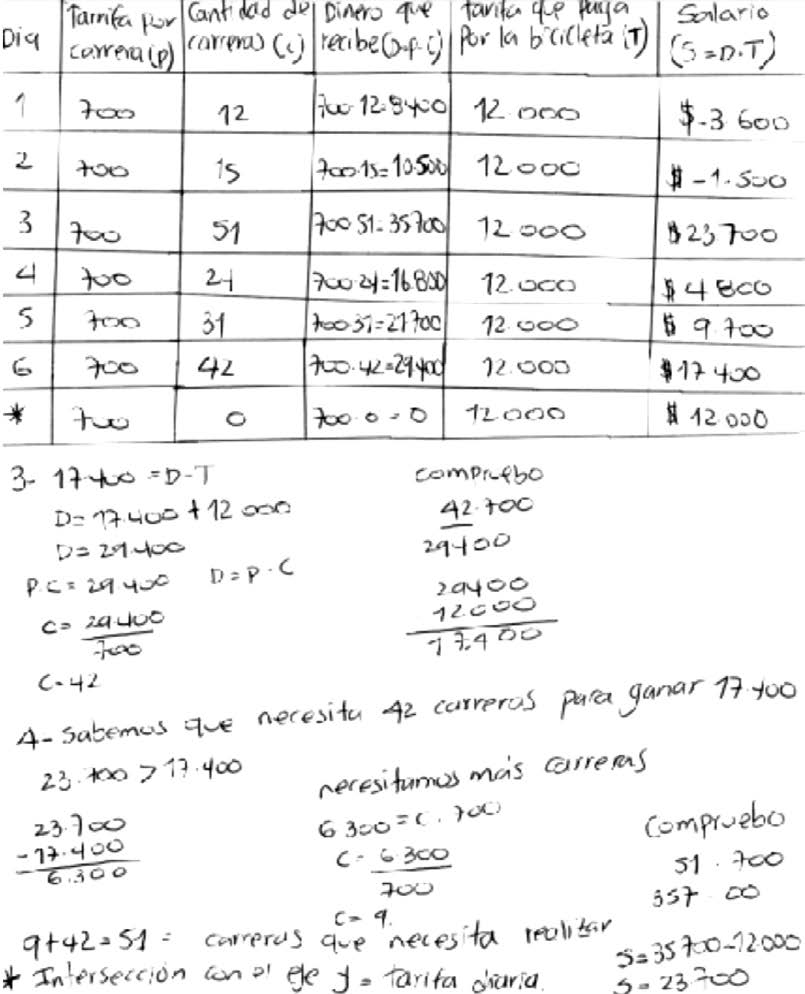 Dia | Tarrifa por carrera (p) | Cantidad de carreras (c) | Dinero que recibe (D=p.c) | tarifa que paga Por la bicicleta (T) | Salario (S=D-T)
1 | 700 | 12 | 700·12=8400 | 12.000 | $-3 600
2 | 700 | 15 | 700·15=10.500 | 12.000 | $ -1.500
3 | 700 | 51 | 700 51=35700 | 12 000 | $ 23 700
4 | 700 | 24 | 700 24=16.800 | 12.000 | $ 4 800
5 | 700 | 31 | 700 31=21700 | 12.000 | $ 9.700
6 | 700 | 42 | 700.42=29400 | 12.000 | $17 400
* | 700 | 0 | 700 0 = 0 | 12000 | $ 12 000
3- 17400 = D-T
D= 17.400 + 12 000
D= 29.400
P.C = 29 400 D = P · C
C= 29.400
700
C=42
compruebo
42.700
29400
29400
12.000
17.400
4- Sabemos que necesita 42 carreras para ganar 17.400
23.700 > 17.400
necesitamos más carreras
23.700
-17.400
6.300
6 300 = C . 700
C= 6 300
700
C= 9.
Compruebo
51 . 700
357 00
9+42=51 = carreras que necesita realizar
S=35 700-12.000
S= 23 700
* Intersección con el eje y = tarifa diaria.